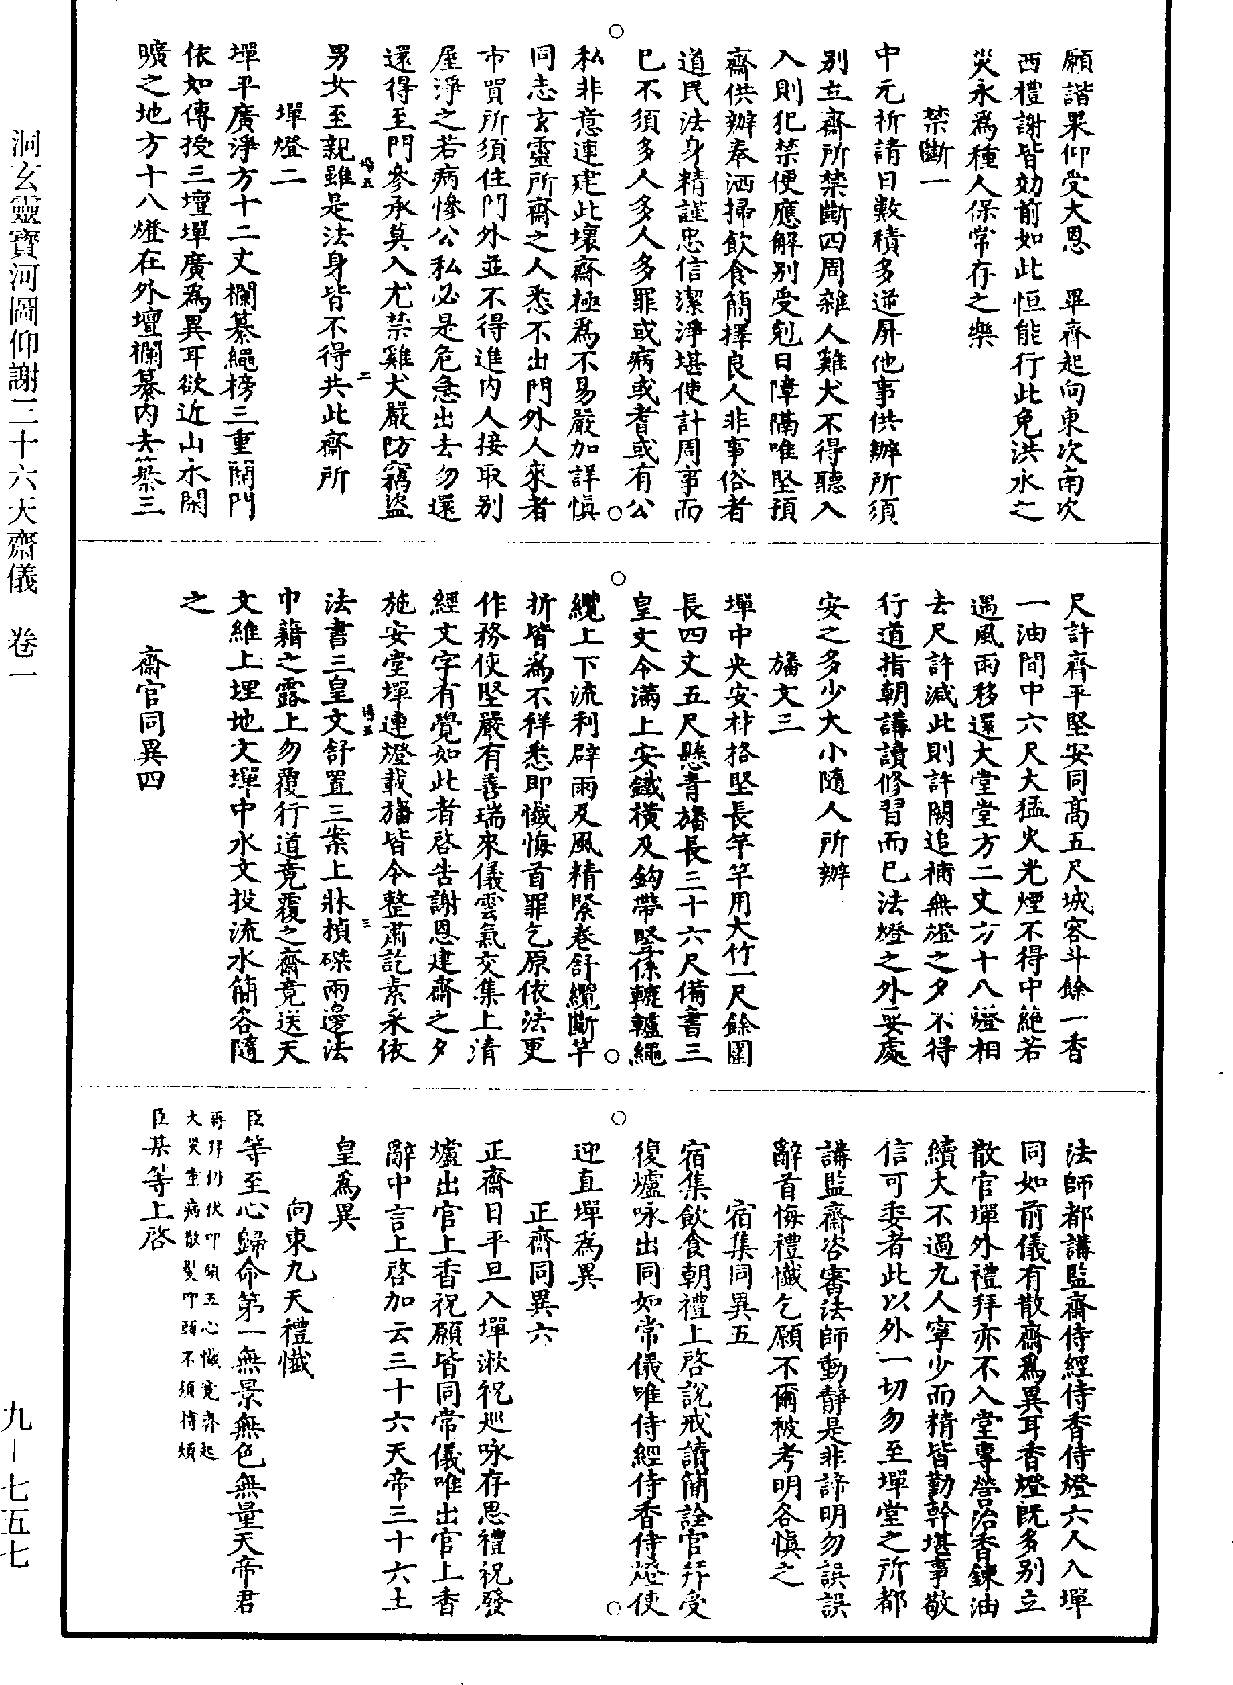 願諧果仰受大恩　畢齊起向東次南次
西禮謝皆効前如此恒能行此免洪水之
災永為種人保常存之樂
禁斷一
中元祈請日數積多逆屏他事供辦所須
別立齋所禁斷四周雜人雞犬不得聽入
入則犯禁便應解別受剋日障隔唯堅預
齋供辦奉洒掃飲食簡擇良人非事俗者
道民法身精謹忠信潔淨堪使計周事而
已不須多人多人多罪或病或耆或有公
私非意連建此壞齋極為不易嚴加詳慎
同志玄靈所齋之人悉不出門外人來者
市買所須住門外並不得進內人接取別
屋淨之若病慘公私必是危急出去勿還
還得至門參承莫入尤禁雞犬嚴防竊盜
男女至親雖是法身皆不得共此齋所
墠燈二
墠平廣淨方十二丈欄纂繩榜三重開門
依如傳授三壇墠廣為異耳欲近山水閑
曠之地方十八燈在外壇欄纂內去纂三
尺許齊平堅安同高五尺城容斗餘一香
一油間中六尺大猛火光煙不得中絕若
遇風雨移還大堂堂方二丈方十八燈相
去尺許減此則許闕追補無燈之夕不得
行道指朝講讀修習而已法燈之外要處
安之多少大小隨人所辦
旛文三
墠中央安材格堅長竿竿用大竹一尺餘圍
長四丈五尺懸青旛長三十六尺備書三
皇文令滿上安鐵橫及鈎帶堅係轆轤繩
纜上下流利辟雨及風精緊卷舒纜斷竿
折皆為不祥悉即懺悔首罪乞原依法更
作務使堅嚴有善瑞來儀雲氣交集上清
經文字有覺如此者啓告謝恩建齋之夕
施安堂墠連燈載旛皆令整肅訖素采依
法書三皇文舒置三案上牀楨磔兩邊法
巾籍之露上勿覆行道竟覆之齋竟送天
文維上埋地文墠中水文投流水簡各隨
之
齋官同異四
法師都講監齋侍經侍香侍燈六人入墠
同如前儀有散齋為異耳香燈既多別立
散官墠外禮拜亦不入堂專營治香鍊油
續大不過九人寧少而精皆勤幹堪事敬
信可委者此以外一切勿至墠堂之所都
講監齋咨審法師動靜是非諦明勿誤誤
辭首悔禮懺乞願不爾被考明各慎之
宿集同異五
宿集飲食朝禮上啓說戒讀簡詮官拜受
復爐咏出同如常儀唯侍經侍香侍燈使
迎直墠為異
正齋同異六
正齋日平旦入墠漱祝巡咏存思禮祝發
爐出官上香祝願皆同常儀唯出官上香
辭中言上啓加云三十六天帝三十六土
皇為異
向東九天禮懺
臣等至心歸命第一無景無色無量天帝君
再拜仍伏叩頭五心懺竟齊起
大災重病散髮叩頭不須搏頰
臣某等上啓
洞玄靈寶河圖仰謝三十六天齋儀　卷一
九—七五七